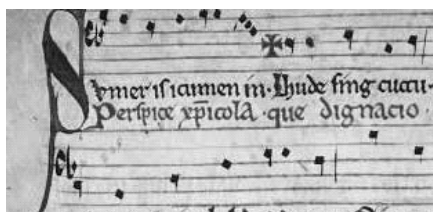 Svmer is icumen in. Lhude sing cuccu.
Perspice xp̄icola. que dignacio.